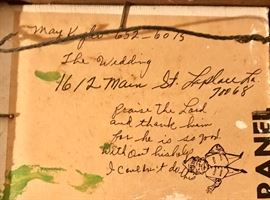 May Kyle 652-6075
The Wedding
1612 Main St. Laplace La.
70068
Praise the Lord
and thank him
for he is so good.
Without his help
I couldn't do
RANE